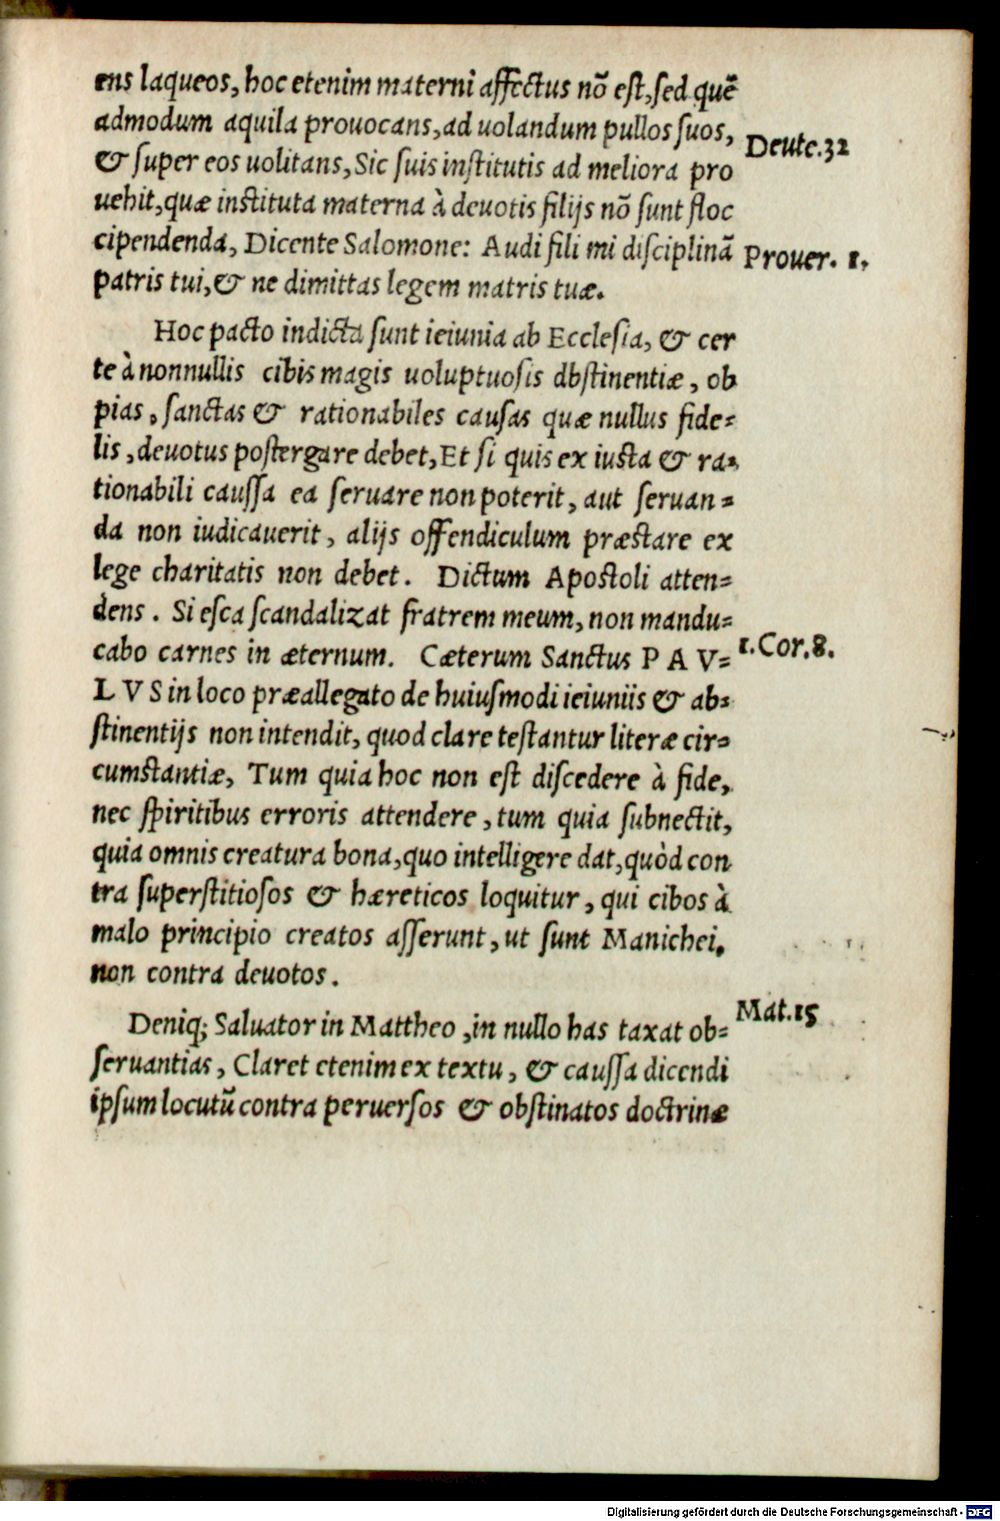 ens laqueos, hoc etenim materni affectus nõ est, sed quẽ
admodum aquila prouocans, ad uolandum pullos suos,
Deute. 32
& super eos uolitans, Sic suis institutis ad meliora pro
uehit, quæ instituta materna à deuotis filijs nõ sunt floc
cipendenda, Dicente Salomone: Audi fili mi disciplinã
Prouer. 1.
patris tui, & ne dimittas legem matris tuæ.
Hoc pacto indicta sunt ieiunia ab Ecclesia, & cer
te à nonnullis cibis magis uoluptuosis abstinentiæ, ob
pias, sanctas & rationabiles causas quæ nullus fide=
lis, deuotus postergare debet, Et si quis ex iusta & ra=
tionabili caussa ea seruare non poterit, aut seruan=
da non iudicauerit, alijs offendiculum præstare ex
lege charitatis non debet. Dictum Apostoli atten=
dens. Si esca scandalizat fratrem meum, non mandu=
cabo carnes in æternum. Cæterum Sanctus P A V=
1. Cor. 8.
L V S in loco præallegato de huiusmodi ieiuniis & ab=
stinentijs non intendit, quod clare testantur literæ cir=
cumstantiæ, Tum quia hoc non est discedere à fide,
nec spiritibus erroris attendere, tum quia subnectit,
quia omnis creatura bona, quo intelligere dat, quòd con
tra superstitiosos & hæreticos loquitur, qui cibos à
malo principio creatos asserunt, ut sunt Manichei,
non contra deuotos.
Deniq; Saluator in Mattheo, in nullo has taxat ob=
Mat. 15
seruantias, Claret etenim ex textu, & caussa dicendi
ipsum locutũ contra peruersos & obstinatos doctrinæ
Digitalisierung gefördert durch die Deutsche Forschungsgemeinschaft - DFG